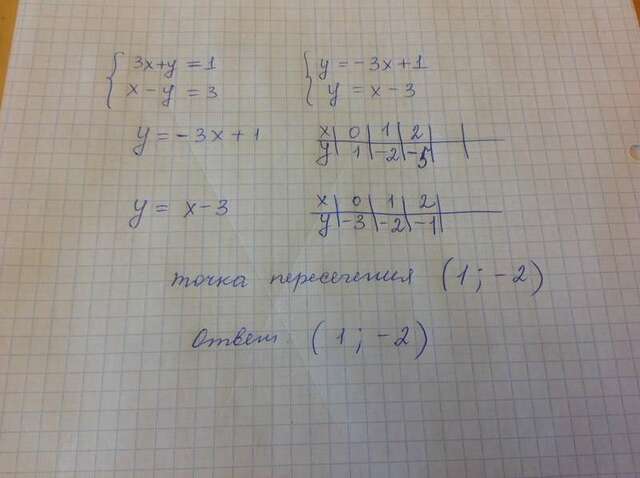 { 3x+y = 1   { y = -3x+1
x - y = 3   y = x - 3
y = -3x+1   x | 0 | 1 | 2
y | 1 | -2 | -5
y = x-3   x | 0 | 1 | 2
y | -3 | -2 | -1
точка пересечения (1; -2)
Ответ (1; -2)